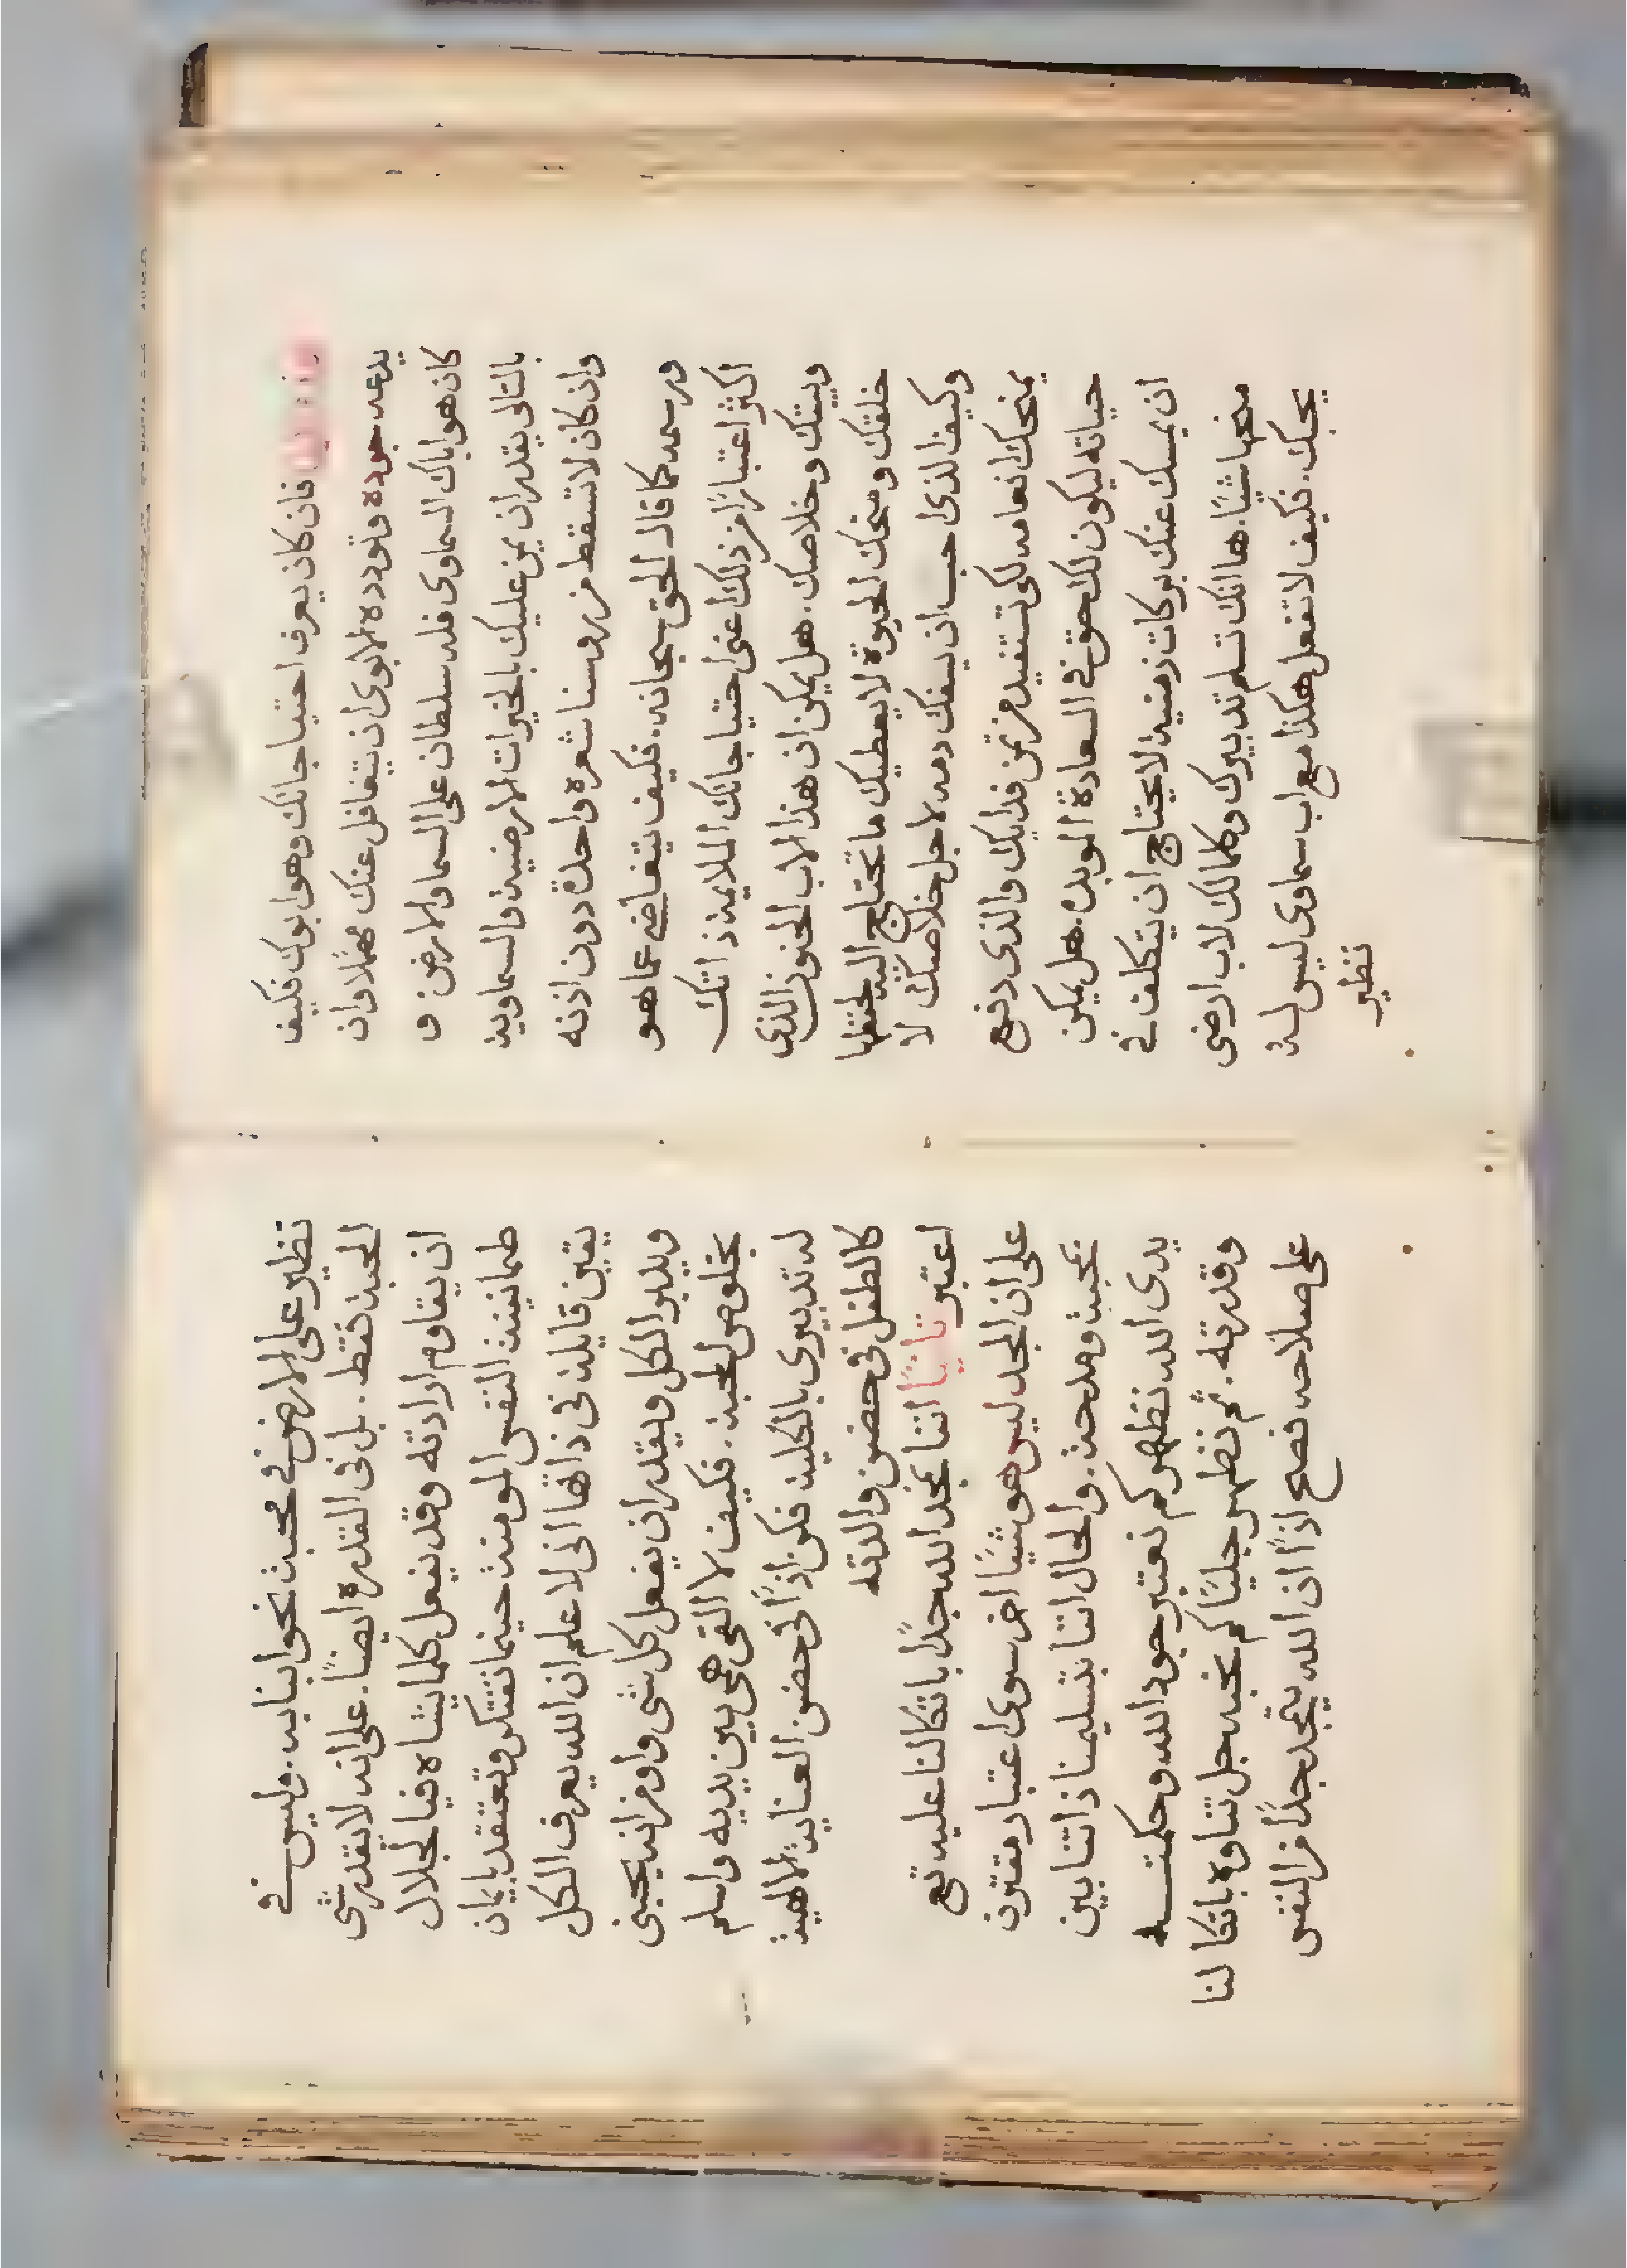 فان كان يعرف احتياجاتك وهو ابوك فكيف
يدعه جوده وتودده الابوى ان يتغافل عنك مهملا وان
كان هو اباك السماوى فله سلطان على السما والارض و
بالتالى يقدر ان يمن عليك بالخيرات الارضية والسماوية
وان كان لا تسقط من روسنا شعرة واحدة دون اذنه
ورسمه كما قال الحق سبحانه. فكيف يتغاضى عما هو
اكثر اعتبارًا من ذلك اعنى احتياجاتك الملايمة ذاتك
وبيتك وخلاصك. هل يمكن ان هذا الاب الحنون الذى
خلقك ومنحك الحيوة لا يعطيك ما تحتاج اليه لحفظها
وكيف الذى احب ان يسفك دمه لاجل خلاصك لا
يمنحك انعامه لكى تستفيد من ثمن فدايك والذى دفع
حياته ليكون لك حق فى السعادة الموبدة. هل يمكن
ان يمسك عنك بركات زمنية لا يحتاج ان يتكلف فى
منحها شيًا. ها انك تسلم تدبيرك وكمالك لاب ارضى
يحبك. فكيف لا تفعل هكذا مع اب سماوى ليس له
نظير
نظير على الارض فى محبته نحو ابنايه. وليس فى
المحبة فقط. بل فى القدرة ايضًا. على انه لا يقدر شى
ان يقاوم ارادته وقد يفعل كلما يشاه فيا لجلال
طمانينة النفس المومنة حينما تفتكر وتعتقد بايمان
يقين قايلة فى ذاتها انى لاعلم ان الله يعرف الكل
ويدبر الكل ويقدر ان يفعل كل شى واومن انه يحبنى
بخلوص المحبة. فكيف لا القى همى بين يديه واسلم
له تدبيرى بالكلية فكن اذًا فى حضن العناية الالهية
كالطفل فى حضن والدته
اعتبر ثانيًا اننا نمجد الله جدًا باتكالنا عليه تع
على ان المجد ليس هو شيًا اخر سوى اعتبار مقترن
بمحبة ومدحة. والحال اننا بتسليمنا ذاتنا بين
يدى الله نظهر كم نعتبر جود الله وحكمته
وقدرته. ثم نظهر جليًا كم نحبه جل ثناوه باتكالنا
على صلاحه فصح اذًا ان الله يتمجد جدًا من النفس